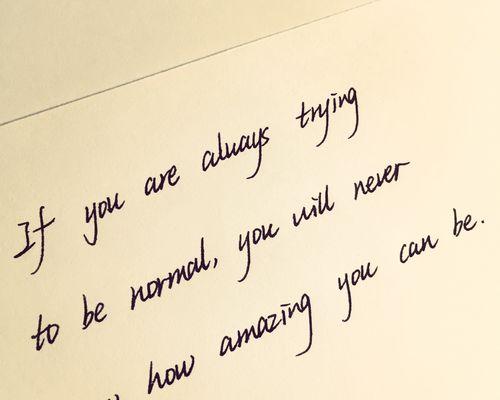 If you are always trying
to be normal, you will never
how amazing you can be.